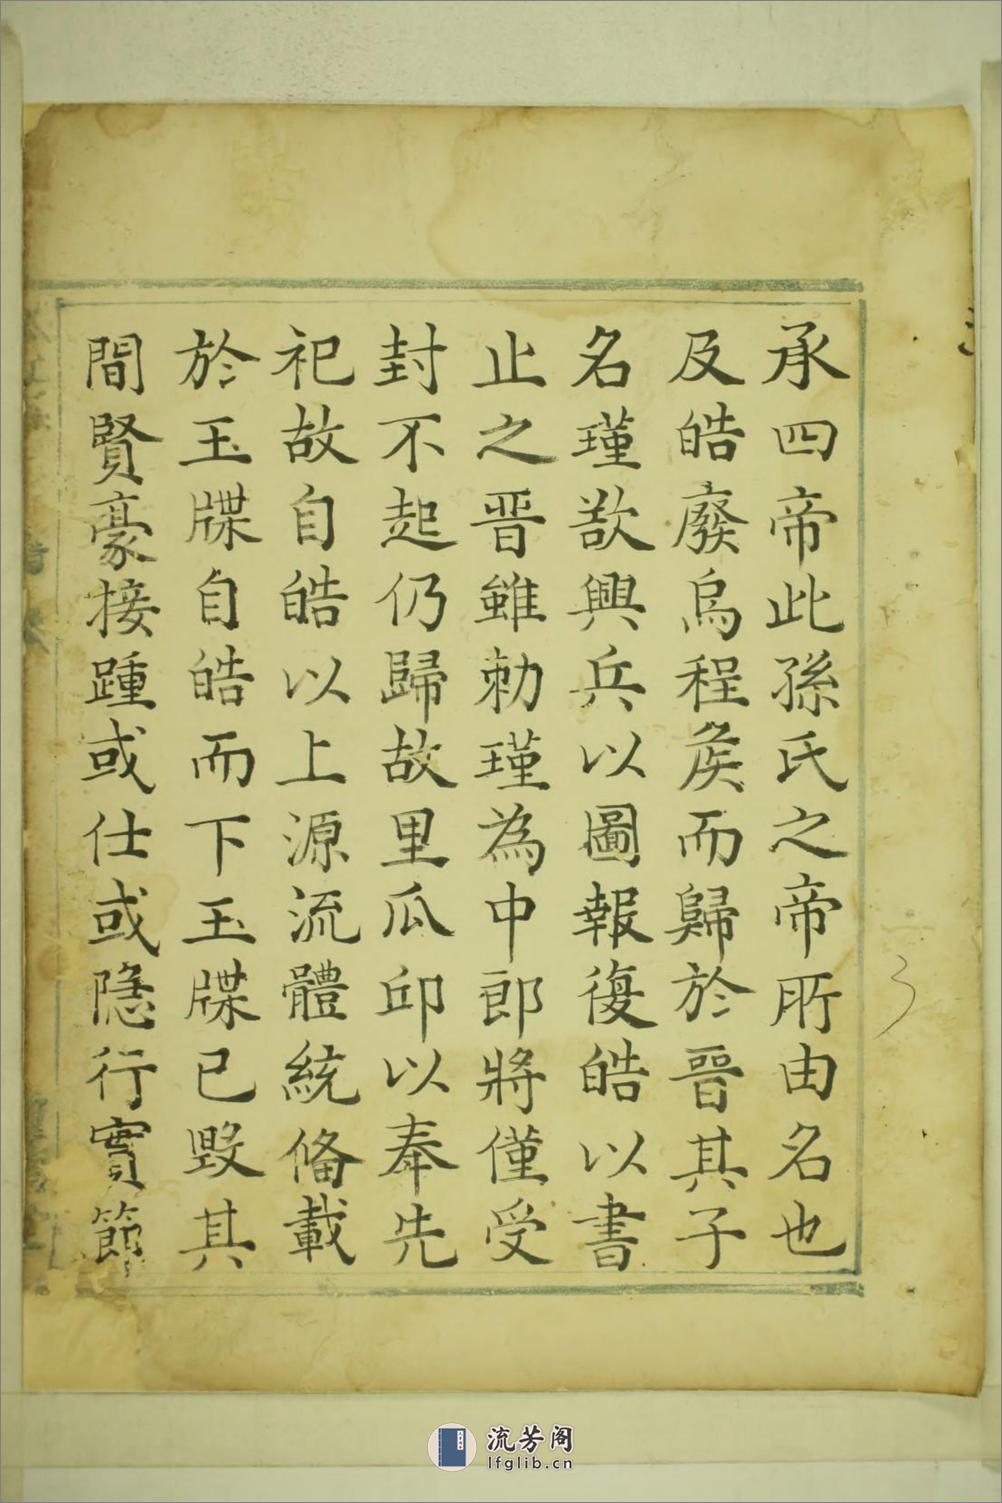 承四帝此孫氏之帝所由名也
及皓廢烏程矦而歸於晉其子
名瑾欲興兵以圖報復皓以書
止之晉雖勅瑾為中郎將僅受
封不起仍歸故里瓜邱以奉先
祀故自皓以上源流體統俻載
於玉牒自皓而下玉牒已毀其
間賢豪接踵或仕或隱行實節
3
流芳阁
lfglib.cn